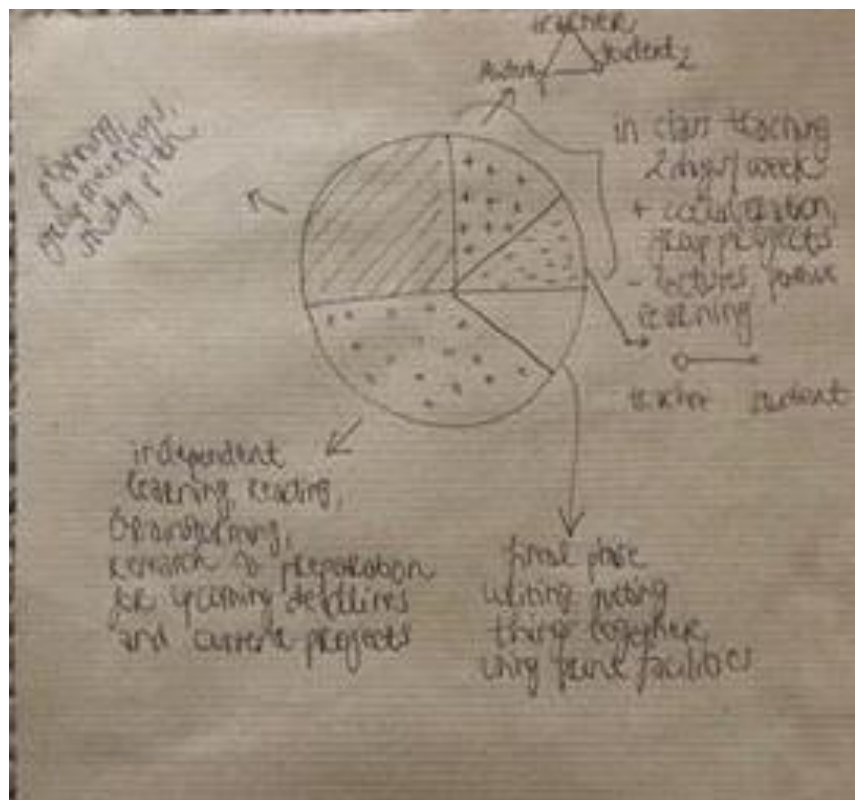 teacher
student 1
student 2
planning,
group meetings,
study plan
in class teaching
2 days/week
+ collaboration,
group projects
- lectures, passive
learning
teacher student
independent
learning, reading,
brainstorming,
research & preparation
for upcoming deadlines
and current projects
final phase
writing putting
things together,
using facilities